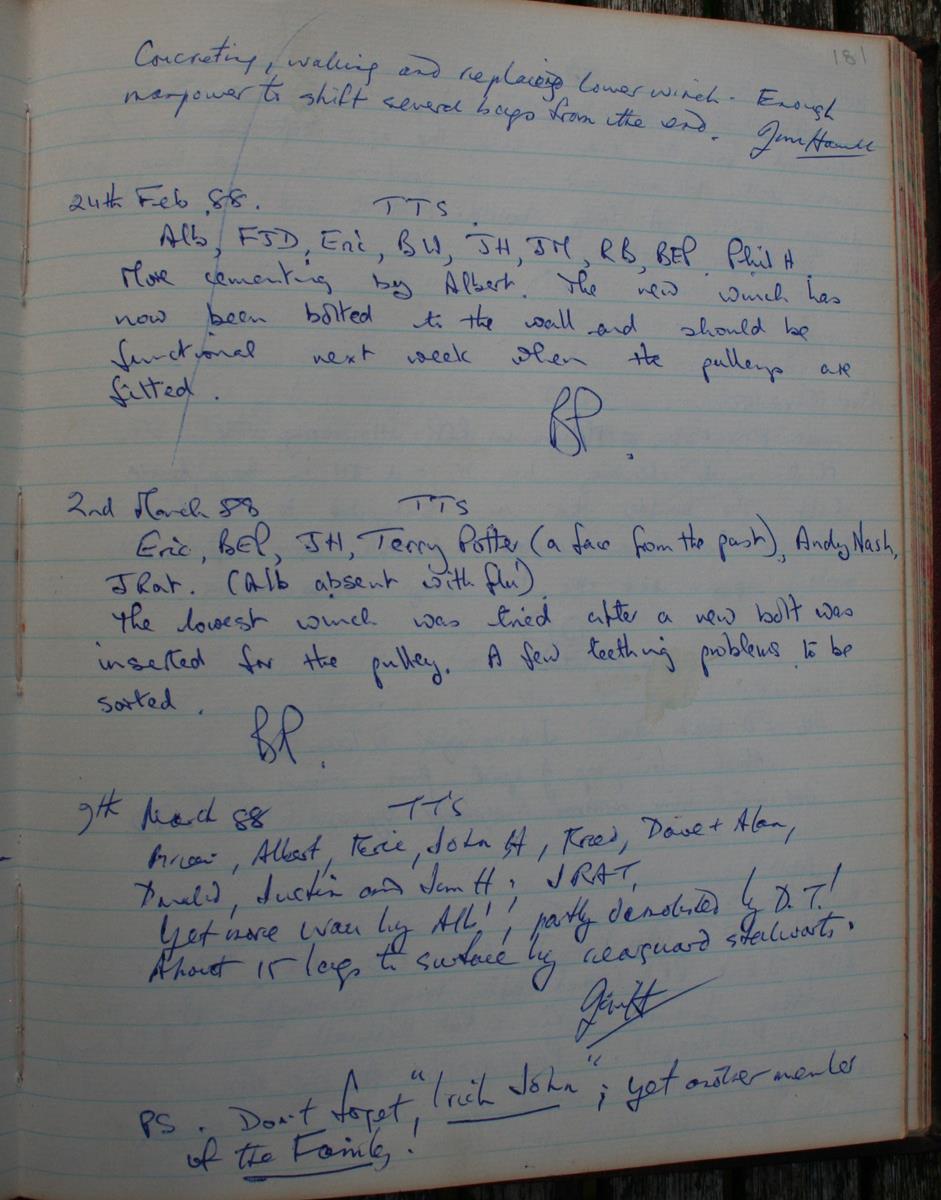 181
Concreting, walling and replacing lower winch. Enough
manpower to shift several bags from the end. Jim Hanwell
24th Feb 88. TTS.
Alb, FJD, Eric, BW, JH, JM, RB, BEP. Phil H.
More cementing by Albert. The new winch has
now been bolted to the wall and should be
functional next week when the pulleys are
fitted. BP.
2nd March 88 TTS
Eric, BEP, JH, Terry Potter (a face from the past), Andy Nash,
JRat. (Alb absent with flu)
The lowest winch was tried after a new bolt was
inserted for the pulley. A few teething problems to be
sorted. BP.
9th March 88 TTS
Brian, Albert, Eric, John H, Fred, Dave + Alan,
Donald, Justin and Jim H; JRAT.
Yet more wall by Alb!, partly demolished by D.T.!
About 15 bags to surface by rearguard stalwarts.
Jim H
PS. Don't forget, "Irish John"; yet another member
of the Family!